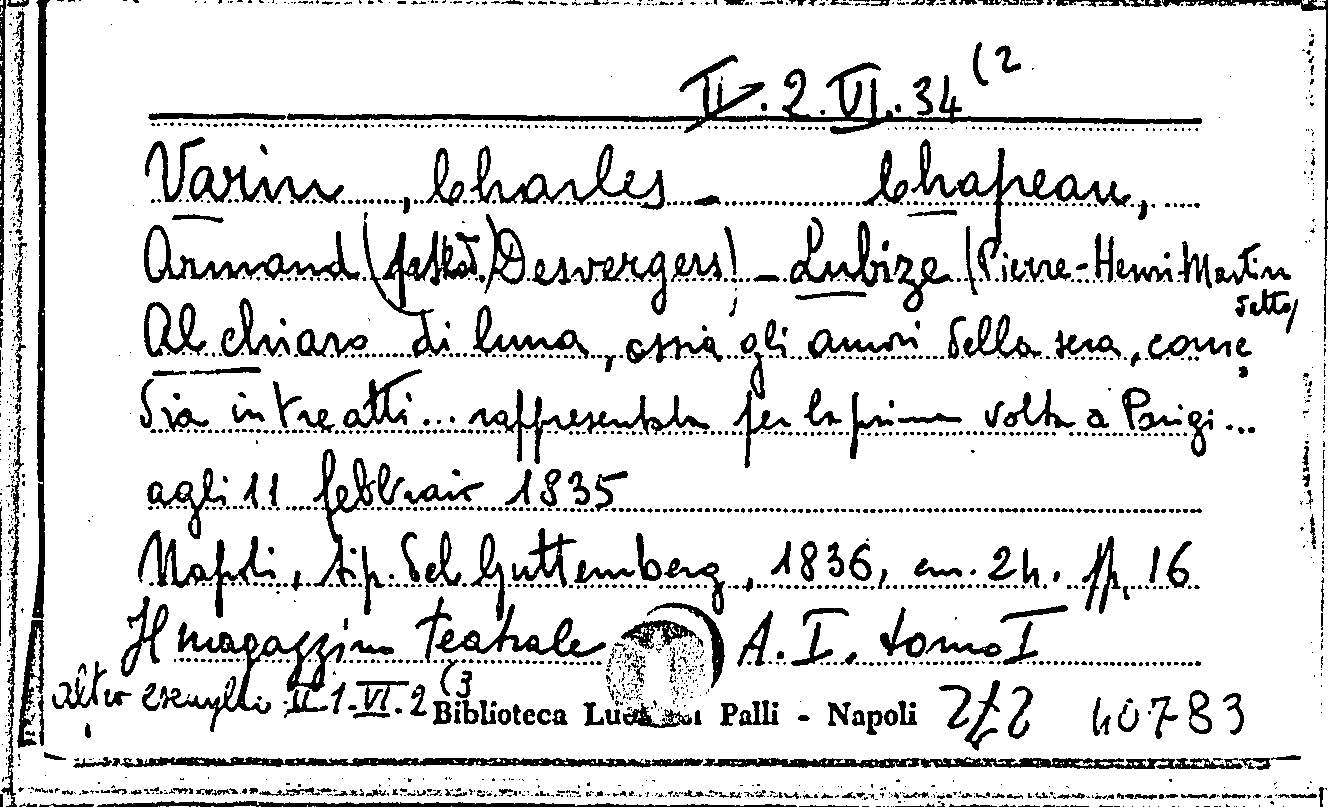 II.2.VI.34 (2
Varin, Charles - Chapeau,
Armand (Desvergers) - Lubize (Pierre-Henri-Martin
detto)
Al chiaro di luna, ossia gli amori della sera, come
dia in tre atti... rappresentata per la prima volta a Parigi...
agli 11 febbraio 1835
Napoli, tip. del Guttemberg, 1836, cm. 24. pp. 16
Il magazzino teatrale A. I. tomo I
altro esemplare II.1.VI.2 (3
Biblioteca Lucchesi Palli - Napoli 40783